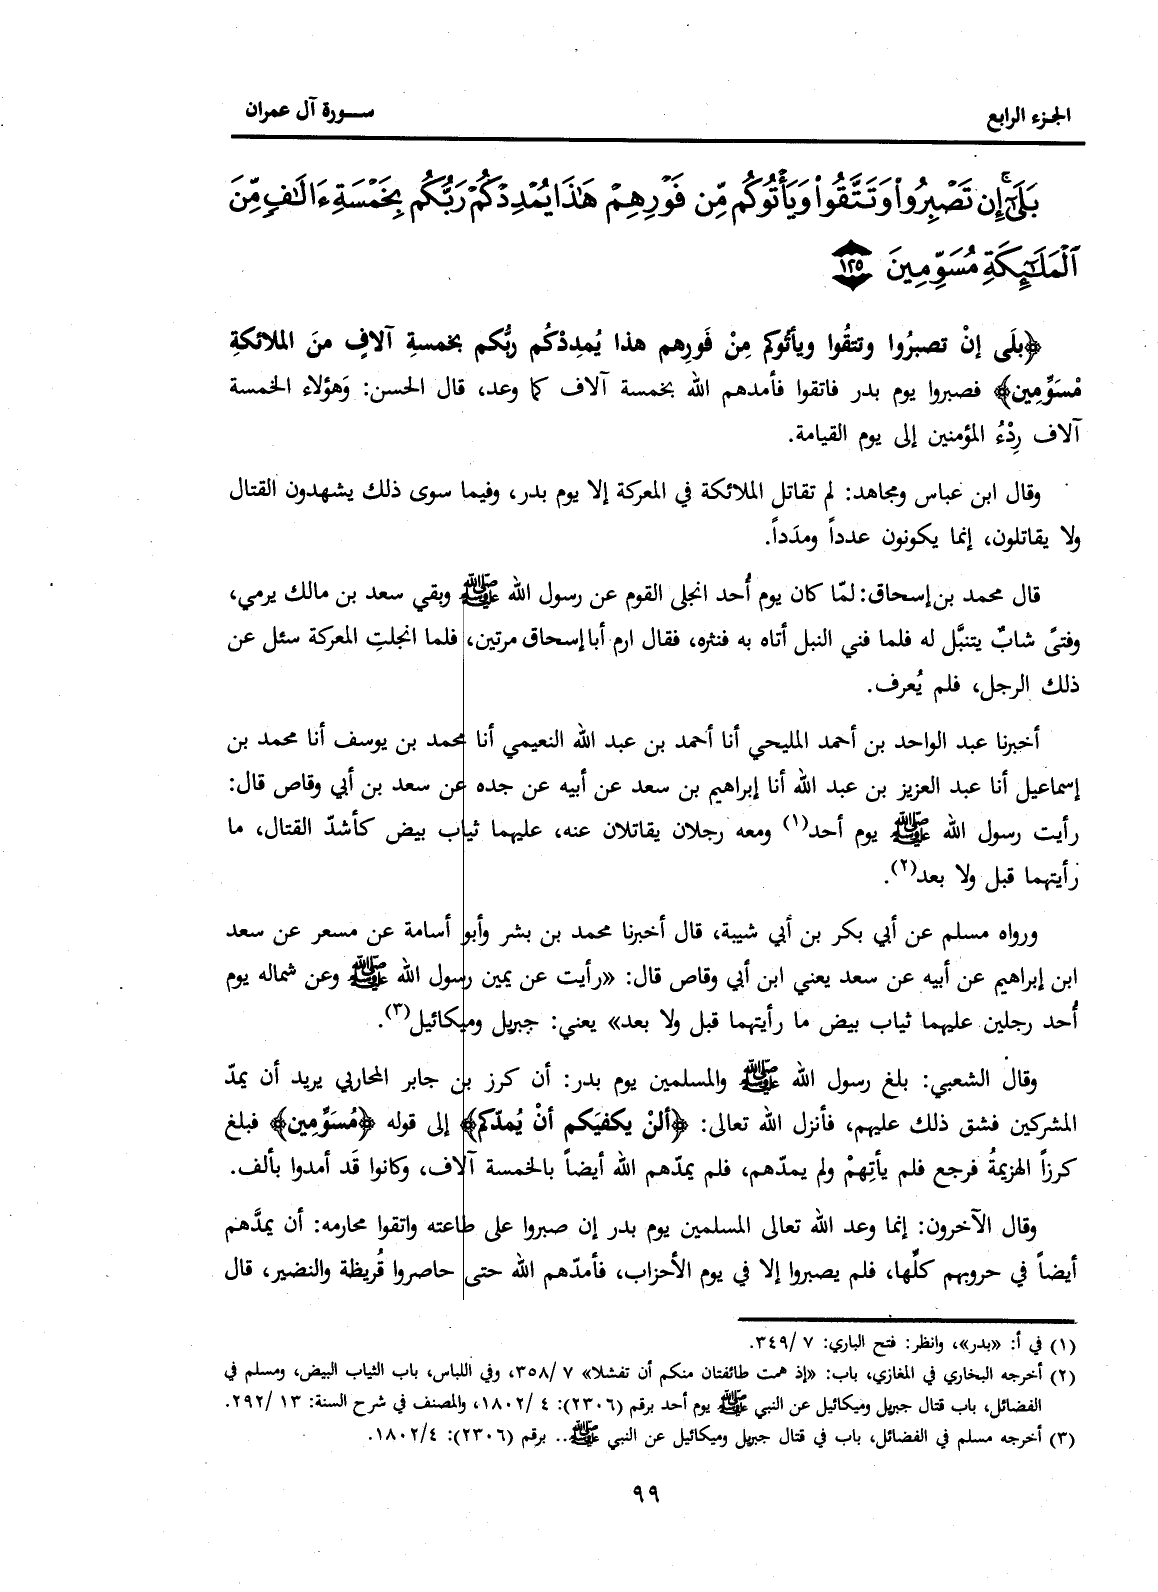 الجزء الرابع
سورة آل عمران
بَلَىٰٓ إِن تَصْبِرُوا۟ وَتَتَّقُوا۟ وَيَأْتُوكُم مِّن فَوْرِهِمْ هَٰذَا يُمْدِدْكُمْ رَبُّكُم بِخَمْسَةِ ءَالَٰفٍ مِّنَ
ٱلْمَلَٰٓئِكَةِ مُسَوِّمِينَ ١٢٥
﴿بلَى إنْ تصبرُوا وتتقُوا ويأتُوكم مِنْ فَورِهم هذا يُمدِدْكُم ربُّكم بخمسةِ آلافٍ منَ الملائكةِ
مُسَوِّمين﴾ فصبروا يوم بدر فاتقوا فأمدهم الله بخمسة آلاف كما وعد، قال الحسن: وَهؤلاء الخمسة
آلاف رِدْءُ المؤمنين إلى يوم القيامة.
وقال ابن عباس ومجاهد: لم تقاتل الملائكة في المعركة إلا يوم بدر، وفيما سوى ذلك يشهدون القتال
ولا يقاتلون، إنما يكونون عدداً ومدَداً.
قال محمد بن إسحاق: لمّا كان يوم أُحد انجلى القوم عن رسول الله ﷺ وبقي سعد بن مالك يرمي،
وفتىً شابٌ يتنبَّل له فلما فني النبل أتاه به فنثره، فقال ارم أبا إسحاق مرتين، فلما انجلتِ المعركة سئل عن
ذلك الرجل، فلم يُعرف.
أخبرنا عبد الواحد بن أحمد المليحي أنا أحمد بن عبد الله النعيمي أنا محمد بن يوسف أنا محمد بن
إسماعيل أنا عبد العزيز بن عبد الله أنا إبراهيم بن سعد عن أبيه عن جده عن سعد بن أبي وقاص قال:
رأيت رسول الله ﷺ يوم أحد(١) ومعه رجلان يقاتلان عنه، عليهما ثياب بيض كأشدّ القتال، ما
رأيتهما قبل ولا بعد(٢).
ورواه مسلم عن أبي بكر بن أبي شيبة، قال أخبرنا محمد بن بشر وأبو أسامة عن مسعر عن سعد
ابن إبراهيم عن أبيه عن سعد يعني ابن أبي وقاص قال: «رأيت عن يمين رسول الله ﷺ وعن شماله يوم
أُحد رجلين عليهما ثياب بيض ما رأيتهما قبل ولا بعد» يعني: جبريل وميكائيل(٣).
وقال الشعبي: بلغ رسول الله ﷺ والمسلمين يوم بدر: أن كرز بن جابر المحاربي يريد أن يمدّ
المشركين فشق ذلك عليهم، فأنزل الله تعالى: ﴿ألنْ يكفيَكم أنْ يُمدّكم﴾ إلى قوله ﴿مُسَوِّمين﴾ فبلغ
كرزاً الهزيمةُ فرجع فلم يأتِهمْ ولم يمدّهم، فلم يمدّهم الله أيضاً بالخمسة آلاف، وكانوا قَد أمدوا بألف.
وقال الآخرون: إنما وعد الله تعالى المسلمين يوم بدر إن صبروا على طاعته واتقوا محارمه: أن يمدَّهم
أيضاً في حروبهم كلِّها، فلم يصبروا إلا في يوم الأحزاب، فأمدّهم الله حتى حاصروا قُريظة والنضير، قال
(١) في أ: «بدر»، وانظر: فتح الباري: ٧ /٣٤٩.
(٢) أخرجه البخاري في المغازي، باب: «إذ همت طائفتان منكم أن تفشلا» ٧ /٣٥٨، وفي اللباس، باب الثياب البيض، ومسلم في
الفضائل، باب قتال جبريل وميكائيل عن النبي ﷺ يوم أحد برقم (٢٣٠٦): ٤ /١٨٠٢، والمصنف في شرح السنة: ١٣ /٢٩٢.
(٣) أخرجه مسلم في الفضائل، باب في قتال جبريل وميكائيل عن النبي ﷺ.. برقم (٢٣٠٦): ١٨٠٢/٤.
٩٩